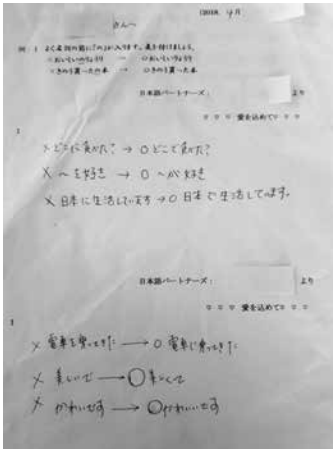 4月
さんへ
例：1 よく名詞の前に「の」が入ります。気を付けましょう。
×おいしいのりょうり → ○おいしいりょうり
×きのう買ったの本 → ○きのう買った本
日本語パートナーズ： より
♡ ♡ ♡ 愛を込めて♡ ♡ ♡
2
× どこに買た？ → ○ どこで買た？
× ～を好き → ○ ～が好き
× 日本に生活しています → ○ 日本で生活しています。
日本語パートナーズ： より
♡ ♡ ♡ 愛を込めて♡ ♡ ♡
3
× 電車を乗ってきた → ○ 電車に乗ってきた
× 美しいで → ○ 美しくて
× かわいいです → ○ かわいいです